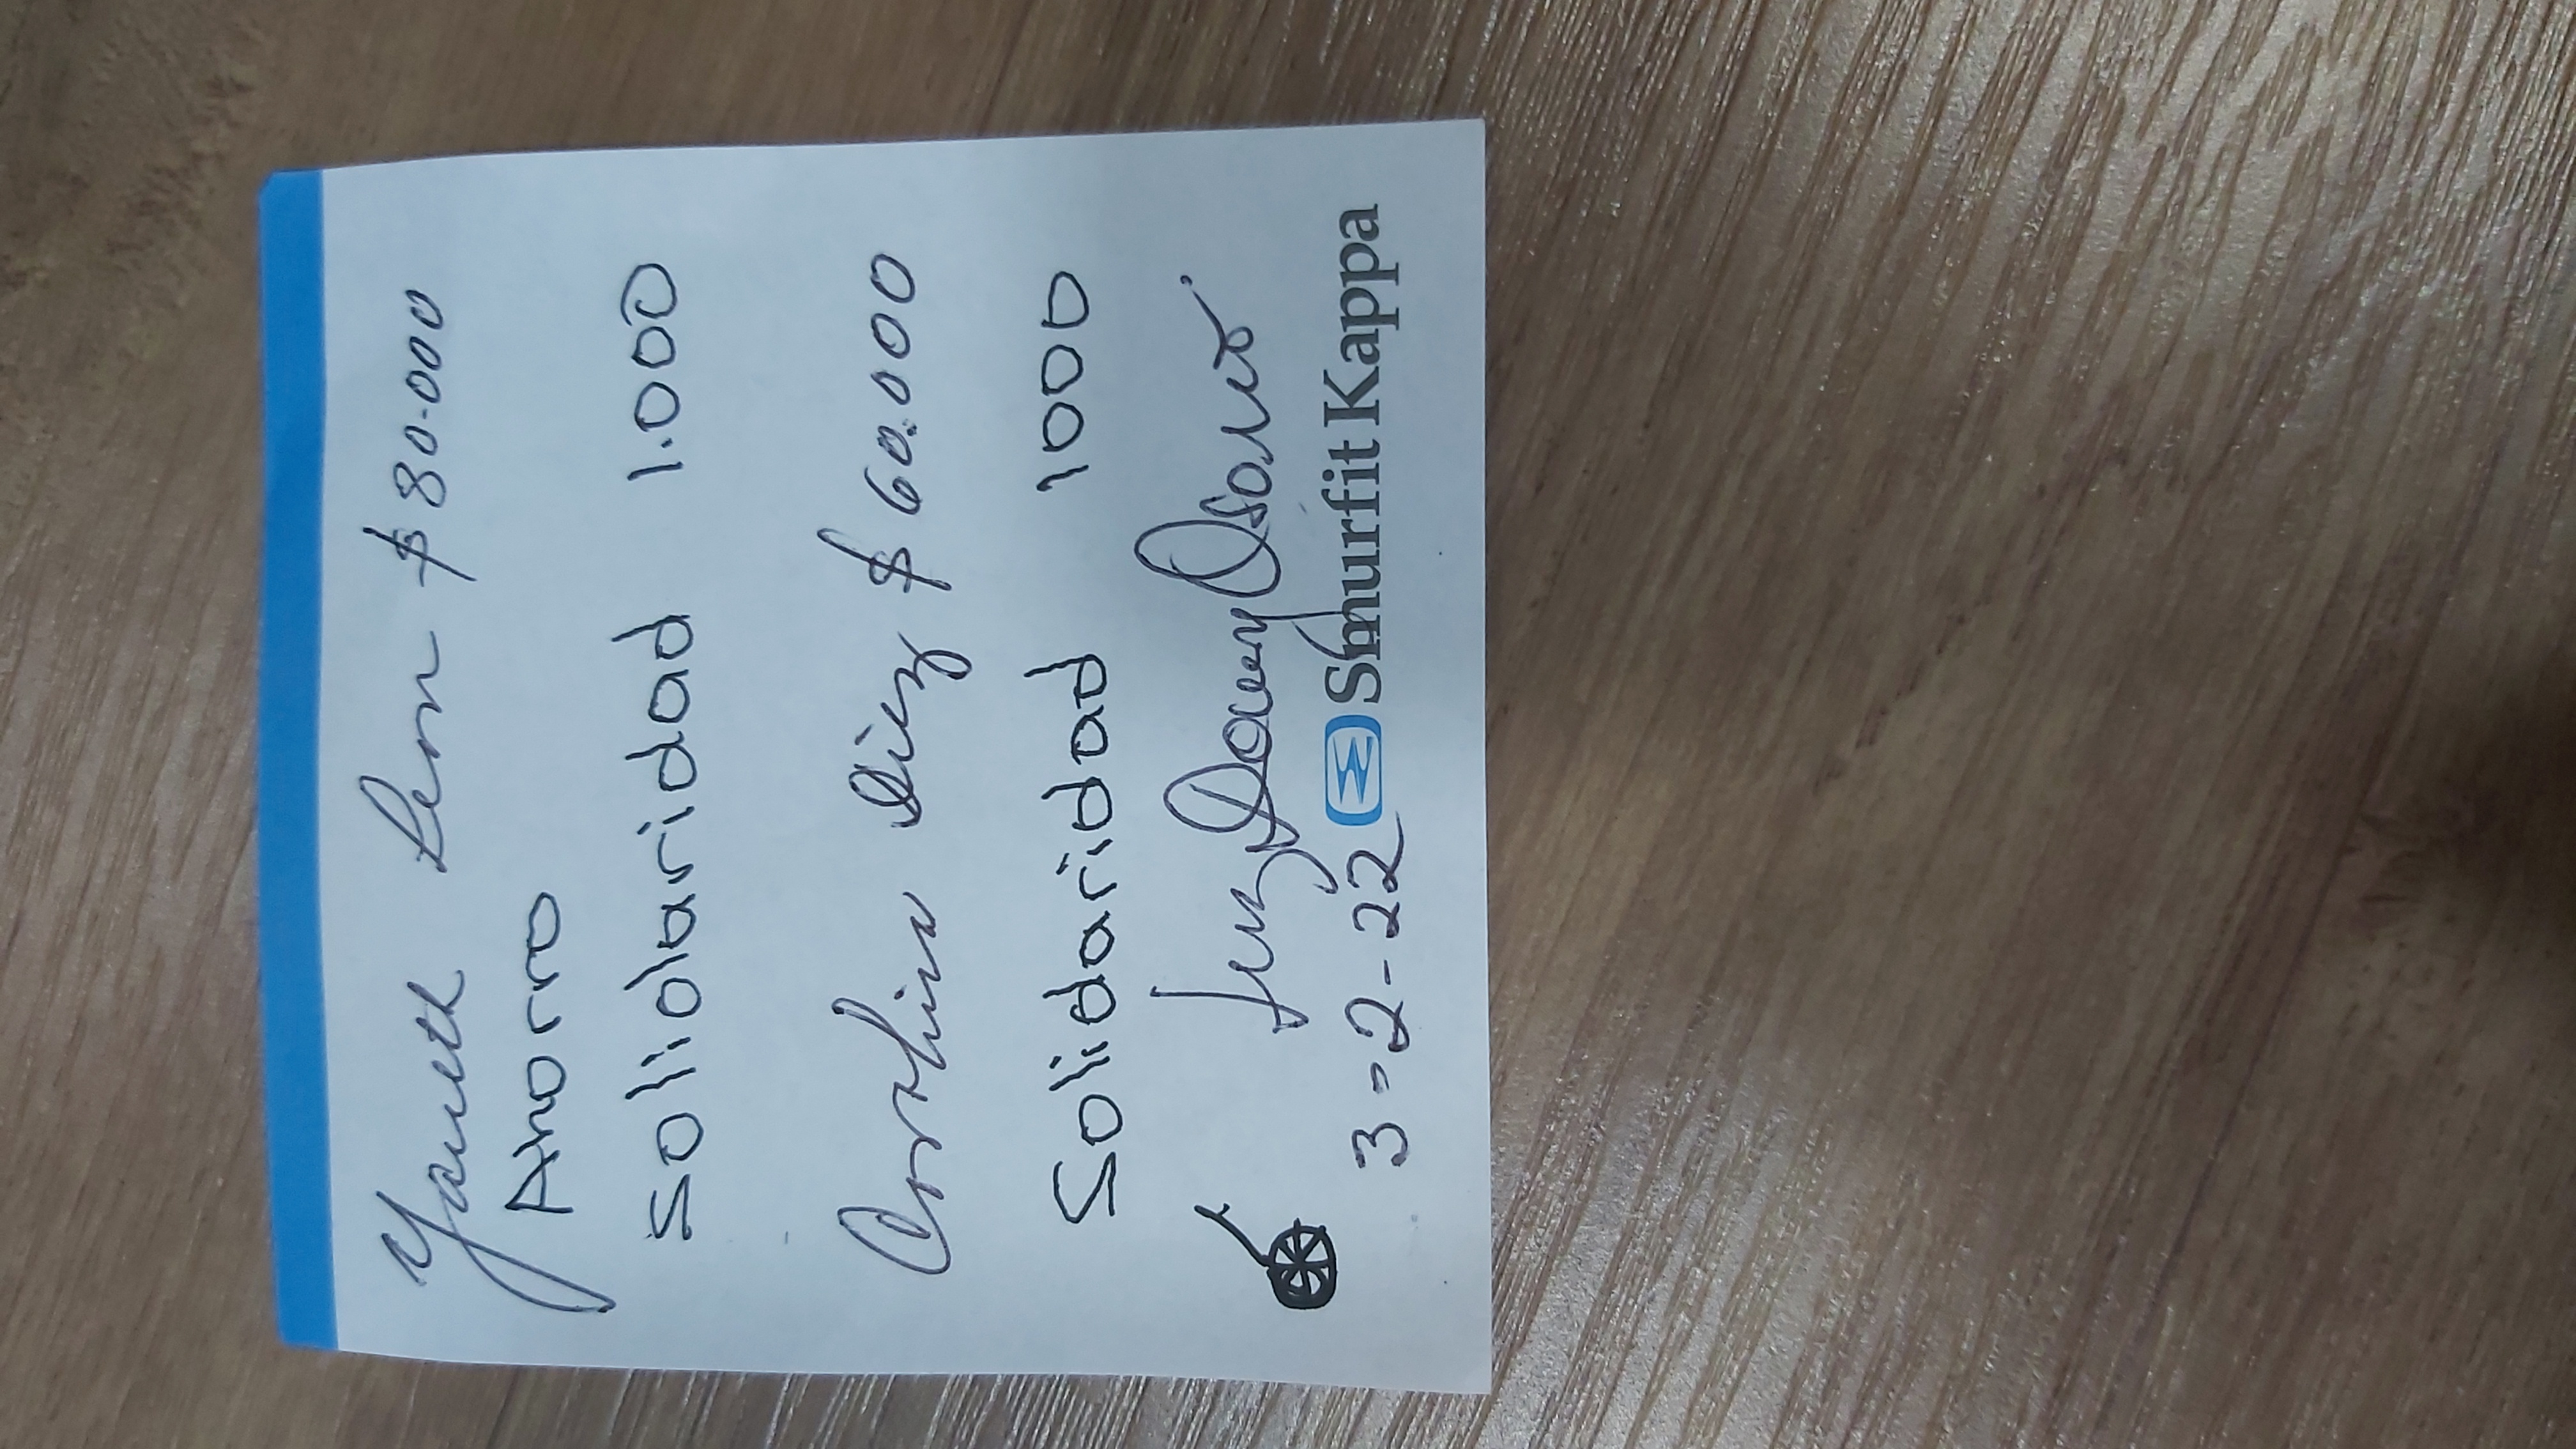 Yaneth Leon $ 80.000
Ahorro
solidaridad 1.000
Carolina Diez $ 60.000
Solidaridad 1000
Luz Dary Osorio
3-2-22 Smurfit Kappa